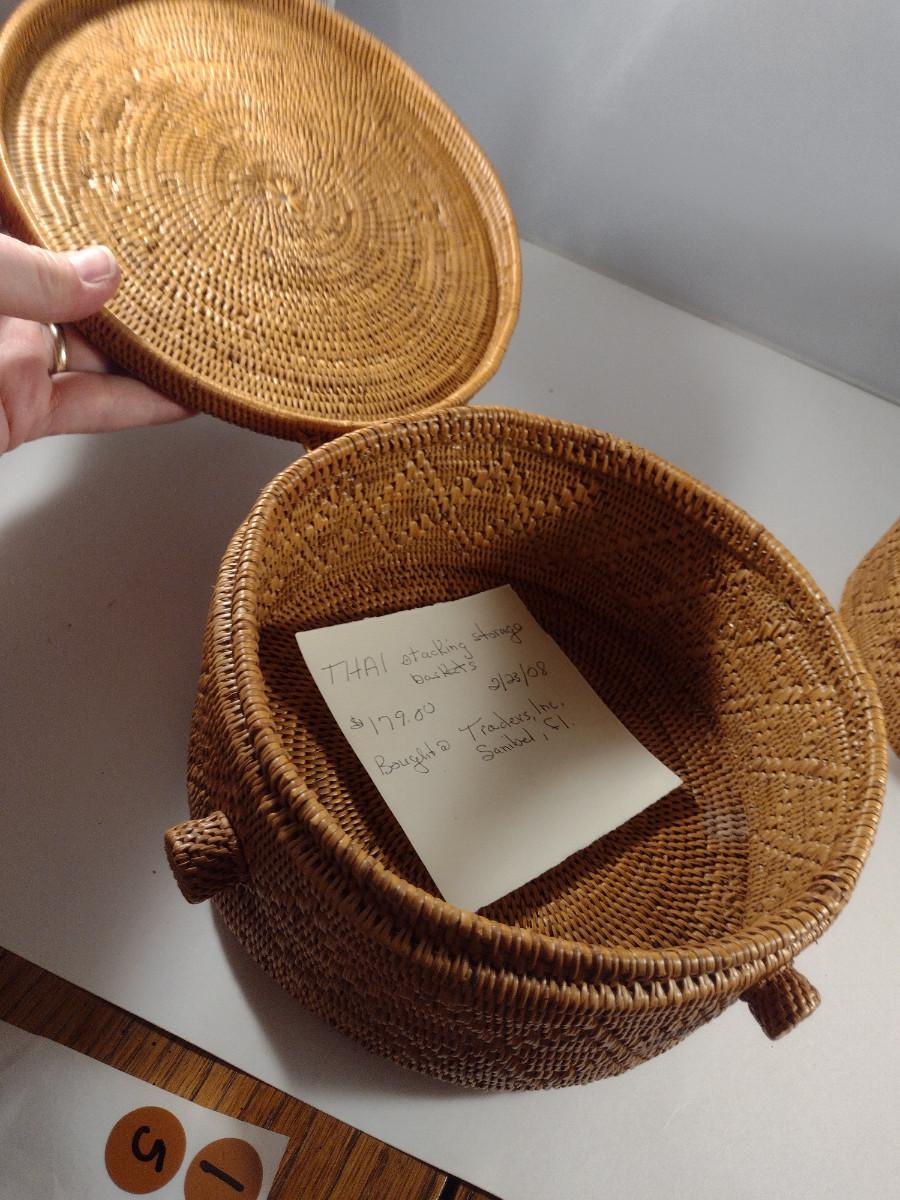 THAI stacking storage
baskets
$179.00 2/23/08
Bought @ Traders, Inc.
Sanibel, Fl.
5
1